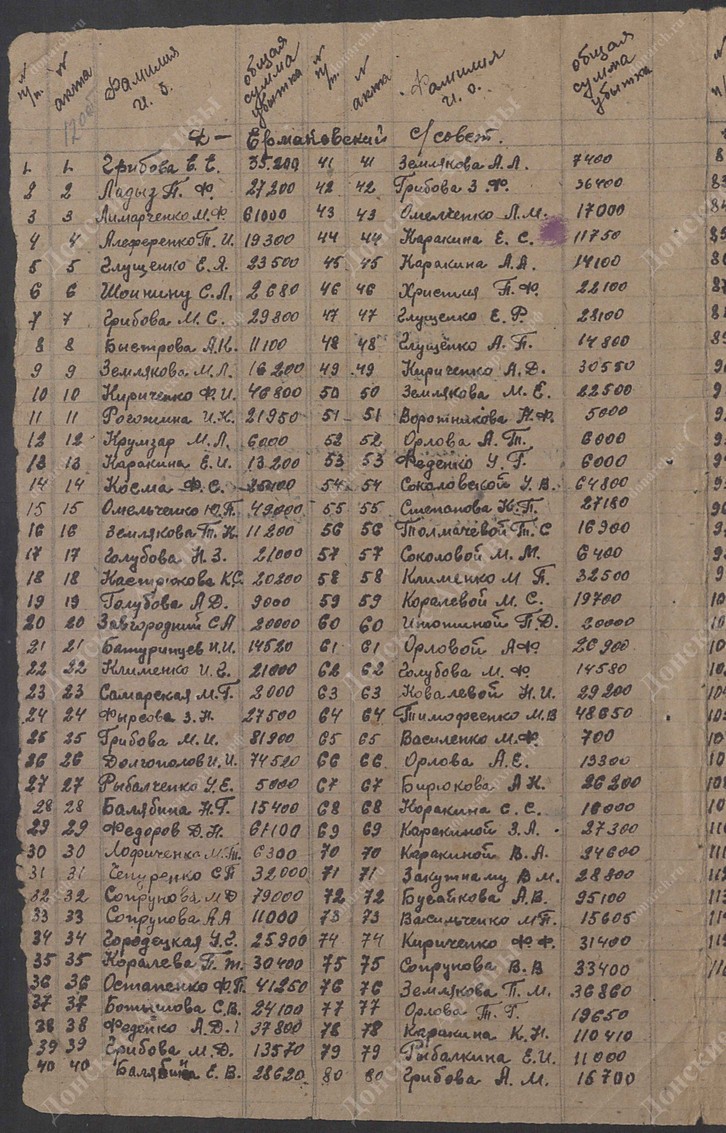 N п/п. N акта Фамилия И. О. общая сумма убытка N п/п. N акта Фамилия И. О. общая сумма убытка
Д- Ермаковский с/совет.
1 1 Грибова Е. Е. 35.200 41 41 Землякова А. Л. 7400
2 2 Ладыз П. Ф. 27200 42 42 Грибова З. Ф. 36400
3 3 Лимарченко М. Ф. 61000 43 43 Омельченко Л. М. 17000
4 4 Алеференко Т. И. 19300 44 44 Каракина Е. С. 11750
5 5 Глущенко Е. Я. 23500 45 45 Каракина А. А. 14100
6 6 С. Л. 2680 46 46 П. Ф. 22100
7 7 Грибова М. С. 29800 47 47 Глущенко Е. Р. 28100
8 8 Быстрова А. К. 11100 48 48 Глущенко А. П. 14800
9 9 Землякова М. Л. 16200 49 49 Кириченко А. Д. 30550
10 10 Кириченко Ф. И. 46800 50 50 Землякова М. Е. 22500
11 11 Рогожина И. К. 21950 51 51 Воротникова Н. Ф. 5000
12 12 Крумзар М. Л. 6000 52 52 Орлова А. Т. 6000
13 13 Каракина Е. И. 13200 53 53 Феденко У. Г. 6000
14 14 Косма Ф. С. 54 54 Соколовской У. В. 64800
15 15 Омельченко Ю. П. 49000 55 55 Степанова К. П. 27180
16 16 Землякова Т. К. 11200 56 56 Толмачевой Т. С 16900
17 17 Голубова Н. З. 21000 57 57 Соколовой М. М. 6400
18 18 Кастрюкова К. С. 20200 58 58 Клименко М П. 32500
19 19 Голубова А. Д. 9000 59 59 Коралевой М. С. 19700
20 20 Завгородний С А 20000 60 60 П. Д. 20000
21 21 Батуринцев Н. И. 14520 61 61 Орловой А Ф. 26900
22 22 Клименко И. Е. 21000 62 62 Голубова М. Ф 14580
23 23 Самарская М. Г. 2000 63 63 Ковалевой Н. И. 29200
24 24 Фырсова З. Н. 27500 64 64 Тимофеенко М. В 48650
25 25 Грибова М. И. 81900 65 65 Василенко М. Ф. 700
26 26 Долгополов И. И. 74520 66 66 Орлова А. Е. 13300
27 27 Рыбалченко У. Е. 5000 67 67 Бирюкова А К. 26200
28 28 Балябина Н. Г. 15400 68 68 Коракина С. С. 10000
29 29 Федоров Д. Н. 61100 69 69 Каракиной З. А. 27300
30 30 Лофиченко М. Т. 6300 70 70 Каракиной В. А. 24600
31 31 Сепуренко С П 32000 71 71 Закутнаму В м. 28800
32 32 Сопрунова М Д 79000 72 72 Бусабкова А. В. 95100
33 33 Сопрунова А. А 11000 73 73 Васильченко М П. 15605
34 34 Городецкая У. Е. 25900 74 74 Кириченко Ф Ф. 31400
35 35 Коралева П. Т. 30400 75 75 Сопрунова В. В 33400
36 36 Остапенко Ф. П. 41250 76 76 Землякова П. М. 36860
37 37 Ботылова С. В. 24100 77 77 Орлова Т. Г. 19650
38 38 Феденко А. Д. 37800 78 78 Каракина К. Н. 110410
39 39 Грибова М. Д. 13570 79 79 Рыбалкина Е. И. 11000
40 40 Балябина Е. В. 28620 80 80 Грибова А. М. 16700